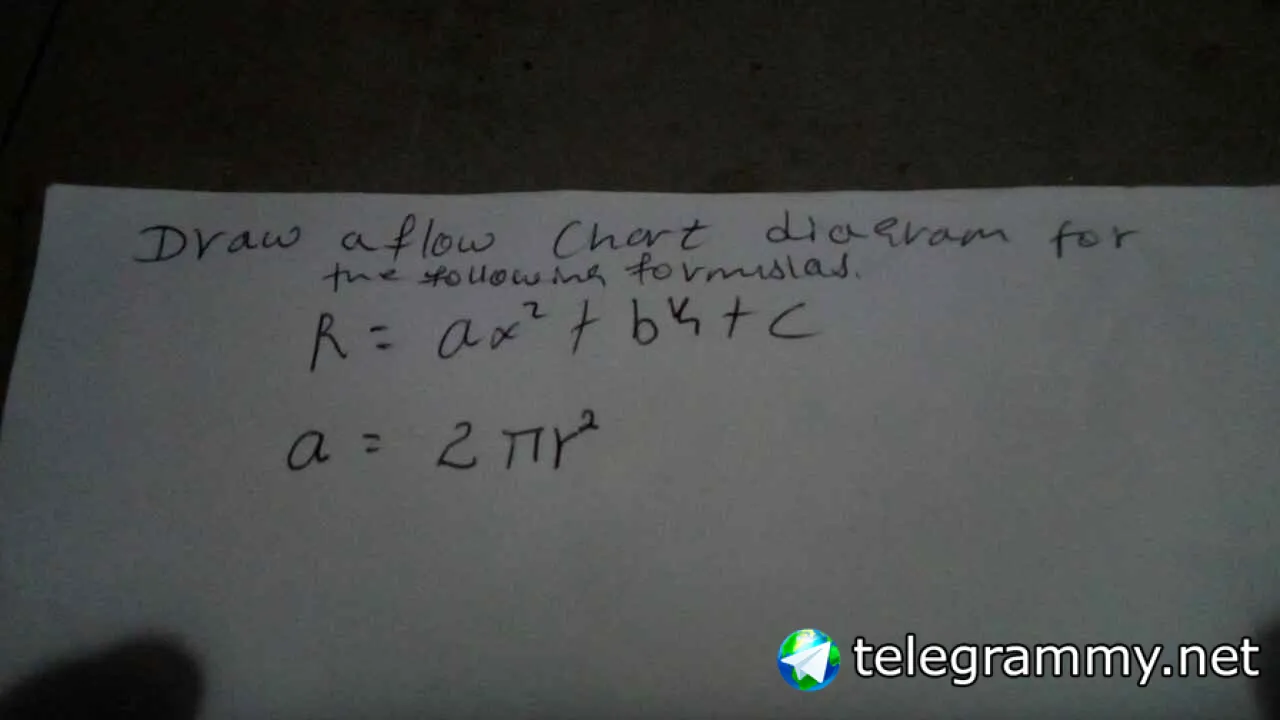 Draw a flow Chart diagram for
the following formulas.
R = ax² + bx + c
a = 2πr²
telegrammy.net